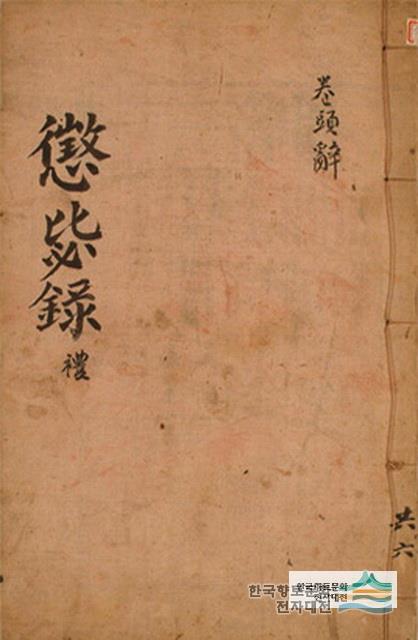 卷頭辭
懲毖錄
禮
共六
한국향토문화
전자대전
한국향토문화
전자대전